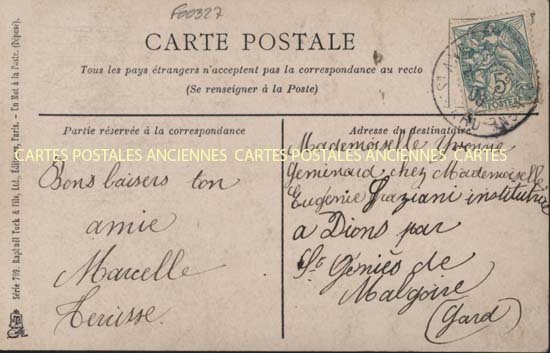 F00327
CARTE POSTALE
Tous les pays étrangers n'acceptent pas la correspondance au recto
(Se renseigner à la Poste)
Partie réservée à la correspondance
Bons baisers ton
amie
Marcelle
Adresse du destinataire
Mademoiselle Yvonne
Geminard chez Mademoiselle
Eugénie Graziani institutrice
à Dions par
St Géniès de
Malgoire
(Gard)
CARTES POSTALES ANCIENNES CARTES POSTALES ANCIENNES CARTES
Série 709. Raphaël Tuck & Fils, Ltd. Éditeurs, Paris. – Un Mot à la Poste. (Déposé).
5
POSTES